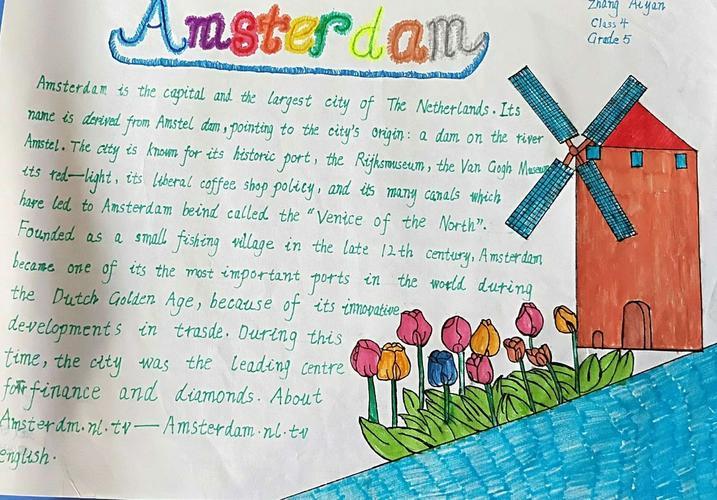 Amsterdam
Zhang Aiyan
Class 4
Grade 5
Amsterdam is the capital and the largest city of The Netherlands. Its
name is derived from Amstel dam, pointing to the city's origin: a dam on the river
Amstel. The city is known for its historic port, the Rijhsmuseum, the Van Gogh Museum
its red—light, its liberal coffee shop policy, and its many canals which
have led to Amsterdam beind called the "Venice of the North".
Founded as a small fishing village in the late 12th century, Amsterdam
became one of its the most important ports in the world during
the Dutch Golden Age, because of its innovative
developments in trasde. During this
time, the city was the leading centre
for finance and diamonds. About
Amsterdm.nl.tv—Amsterdam.nl.tv
english.